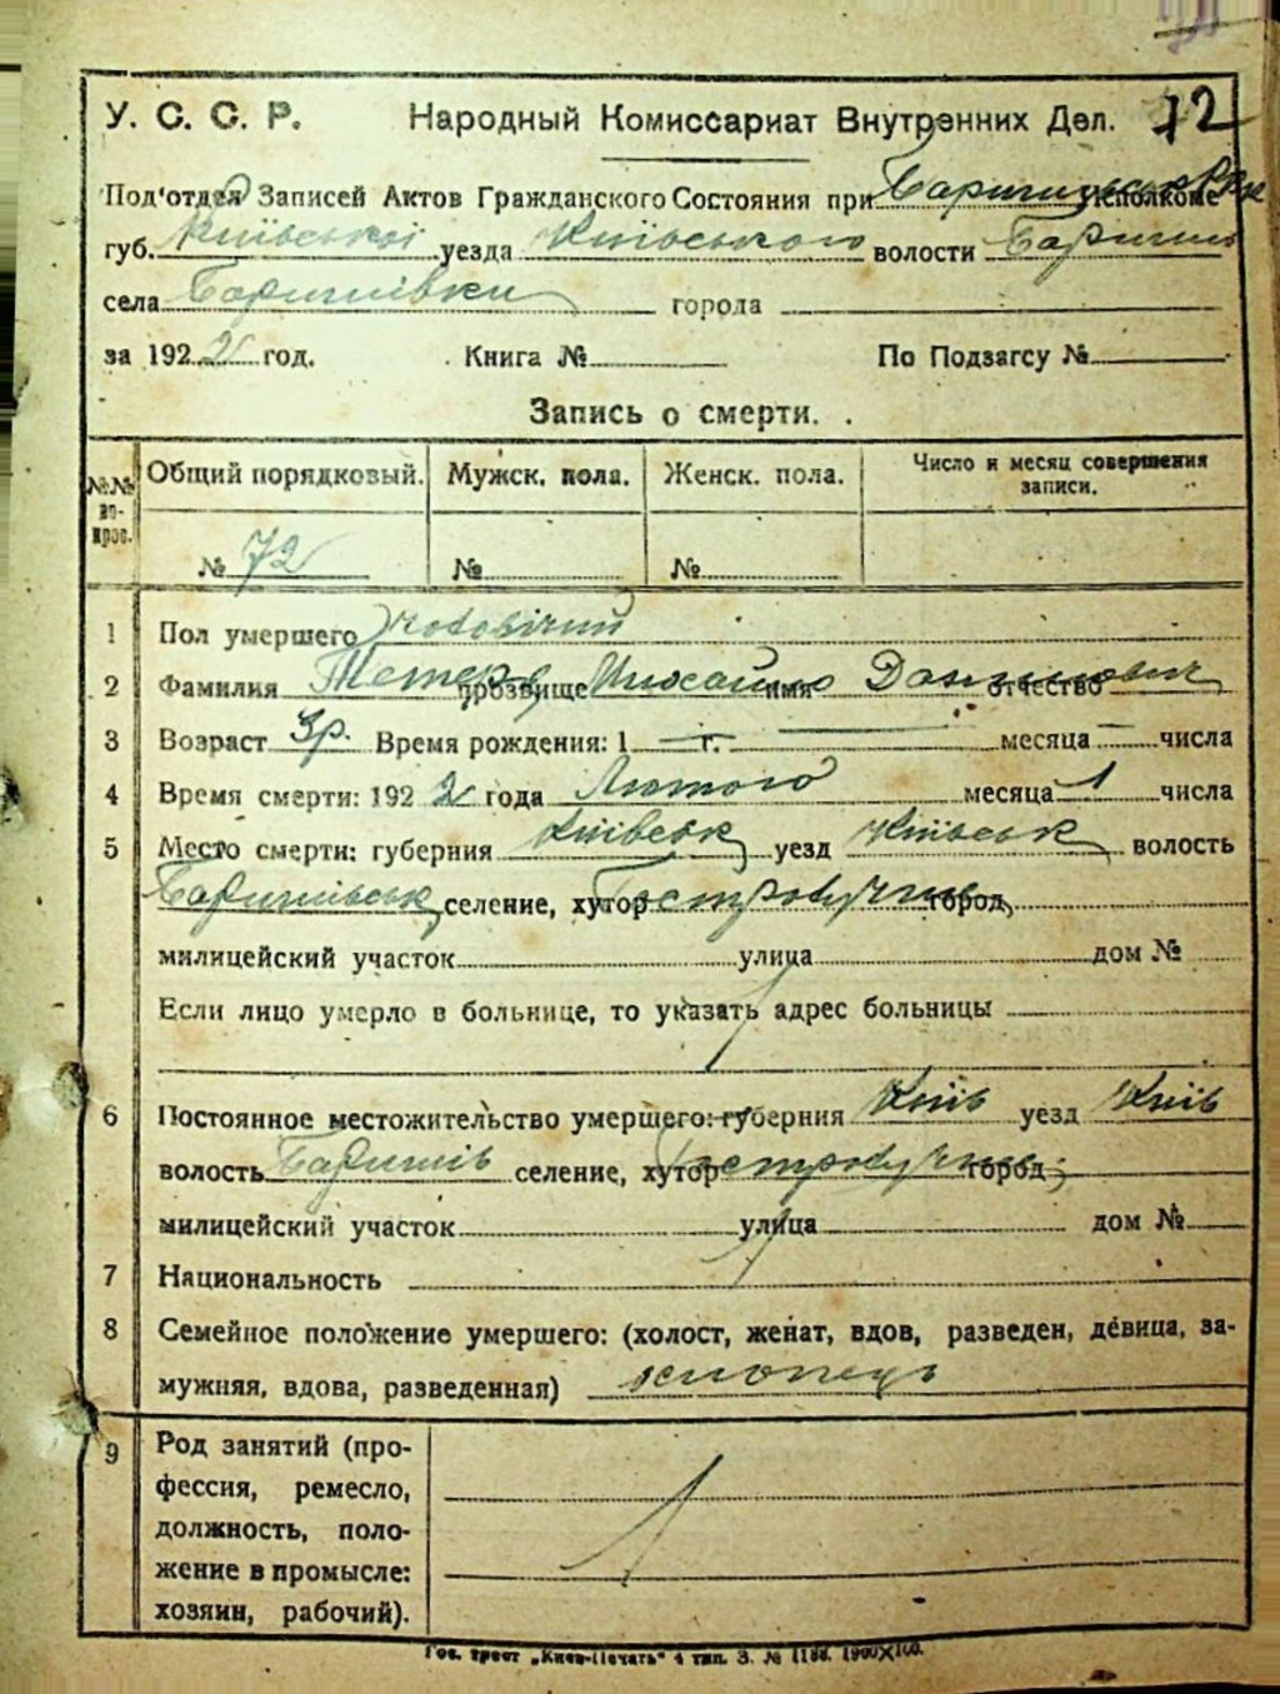 72
У. С. С. Р. Народный Комиссариат Внутренних Дел.
Под'отдел Записей Актов Гражданского Состояния при Исполкоме
губ. Київської уезда Київського волости Баришів
села Баришівки города
за 1922 год. Книга № По Подзагсу №
Запись о смерти.
№№ вопрос. Общий порядковый. Мужск. пола. Женск. пола. Число и месяц совершения записи.
№ 72 № №
1 Пол умершего чоловічий
2 Фамилия прозвище Михайло имя Данилович отчество
3 Возраст 3р. Время рождения: 1 — г. — месяца — числа
4 Время смерти: 1922 года Лютого месяца 1 числа
5 Место смерти: губерния Київськ уезд Київськ волость
Баришівськ селение, хутор город
милицейский участок улица дом №
Если лицо умерло в больнице, то указать адрес больницы
6 Постоянное местожительство умершего: губерния Київ уезд Київ
волость Баришів селение, хутор город
милицейский участок улица дом №
7 Национальность
8 Семейное положение умершего: (холост, женат, вдов, разведен, девица, за-
мужняя, вдова, разведенная) хлопець
9 Род занятий (про-
фессия, ремесло,
должность, поло-
жение в промысле:
хозяин, рабочий).
Гос. трест „Киев-Печать" 4 тип. З. № 1188. 1900X100.